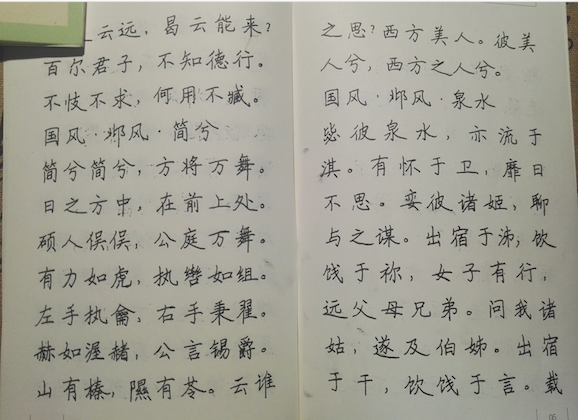 云远，曷云能来？
百尔君子，不知德行。
不忮不求，何用不臧。
国风·邶风·简兮
简兮简兮，方将万舞。
日之方中，在前上处。
硕人俣俣，公庭万舞。
有力如虎，执辔如组。
左手执龠，右手秉翟。
赫如渥赭，公言锡爵。
山有榛，隰有苓。云谁
之思？西方美人。彼美
人兮，西方之人兮。
国风·邶风·泉水
毖彼泉水，亦流于
淇。有怀于卫，靡日
不思。娈彼诸姬，聊
与之谋。出宿于泲，饮
饯于祢，女子有行，
远父母兄弟。问我诸
姑，遂及伯姊。出宿
于干，饮饯于言。载